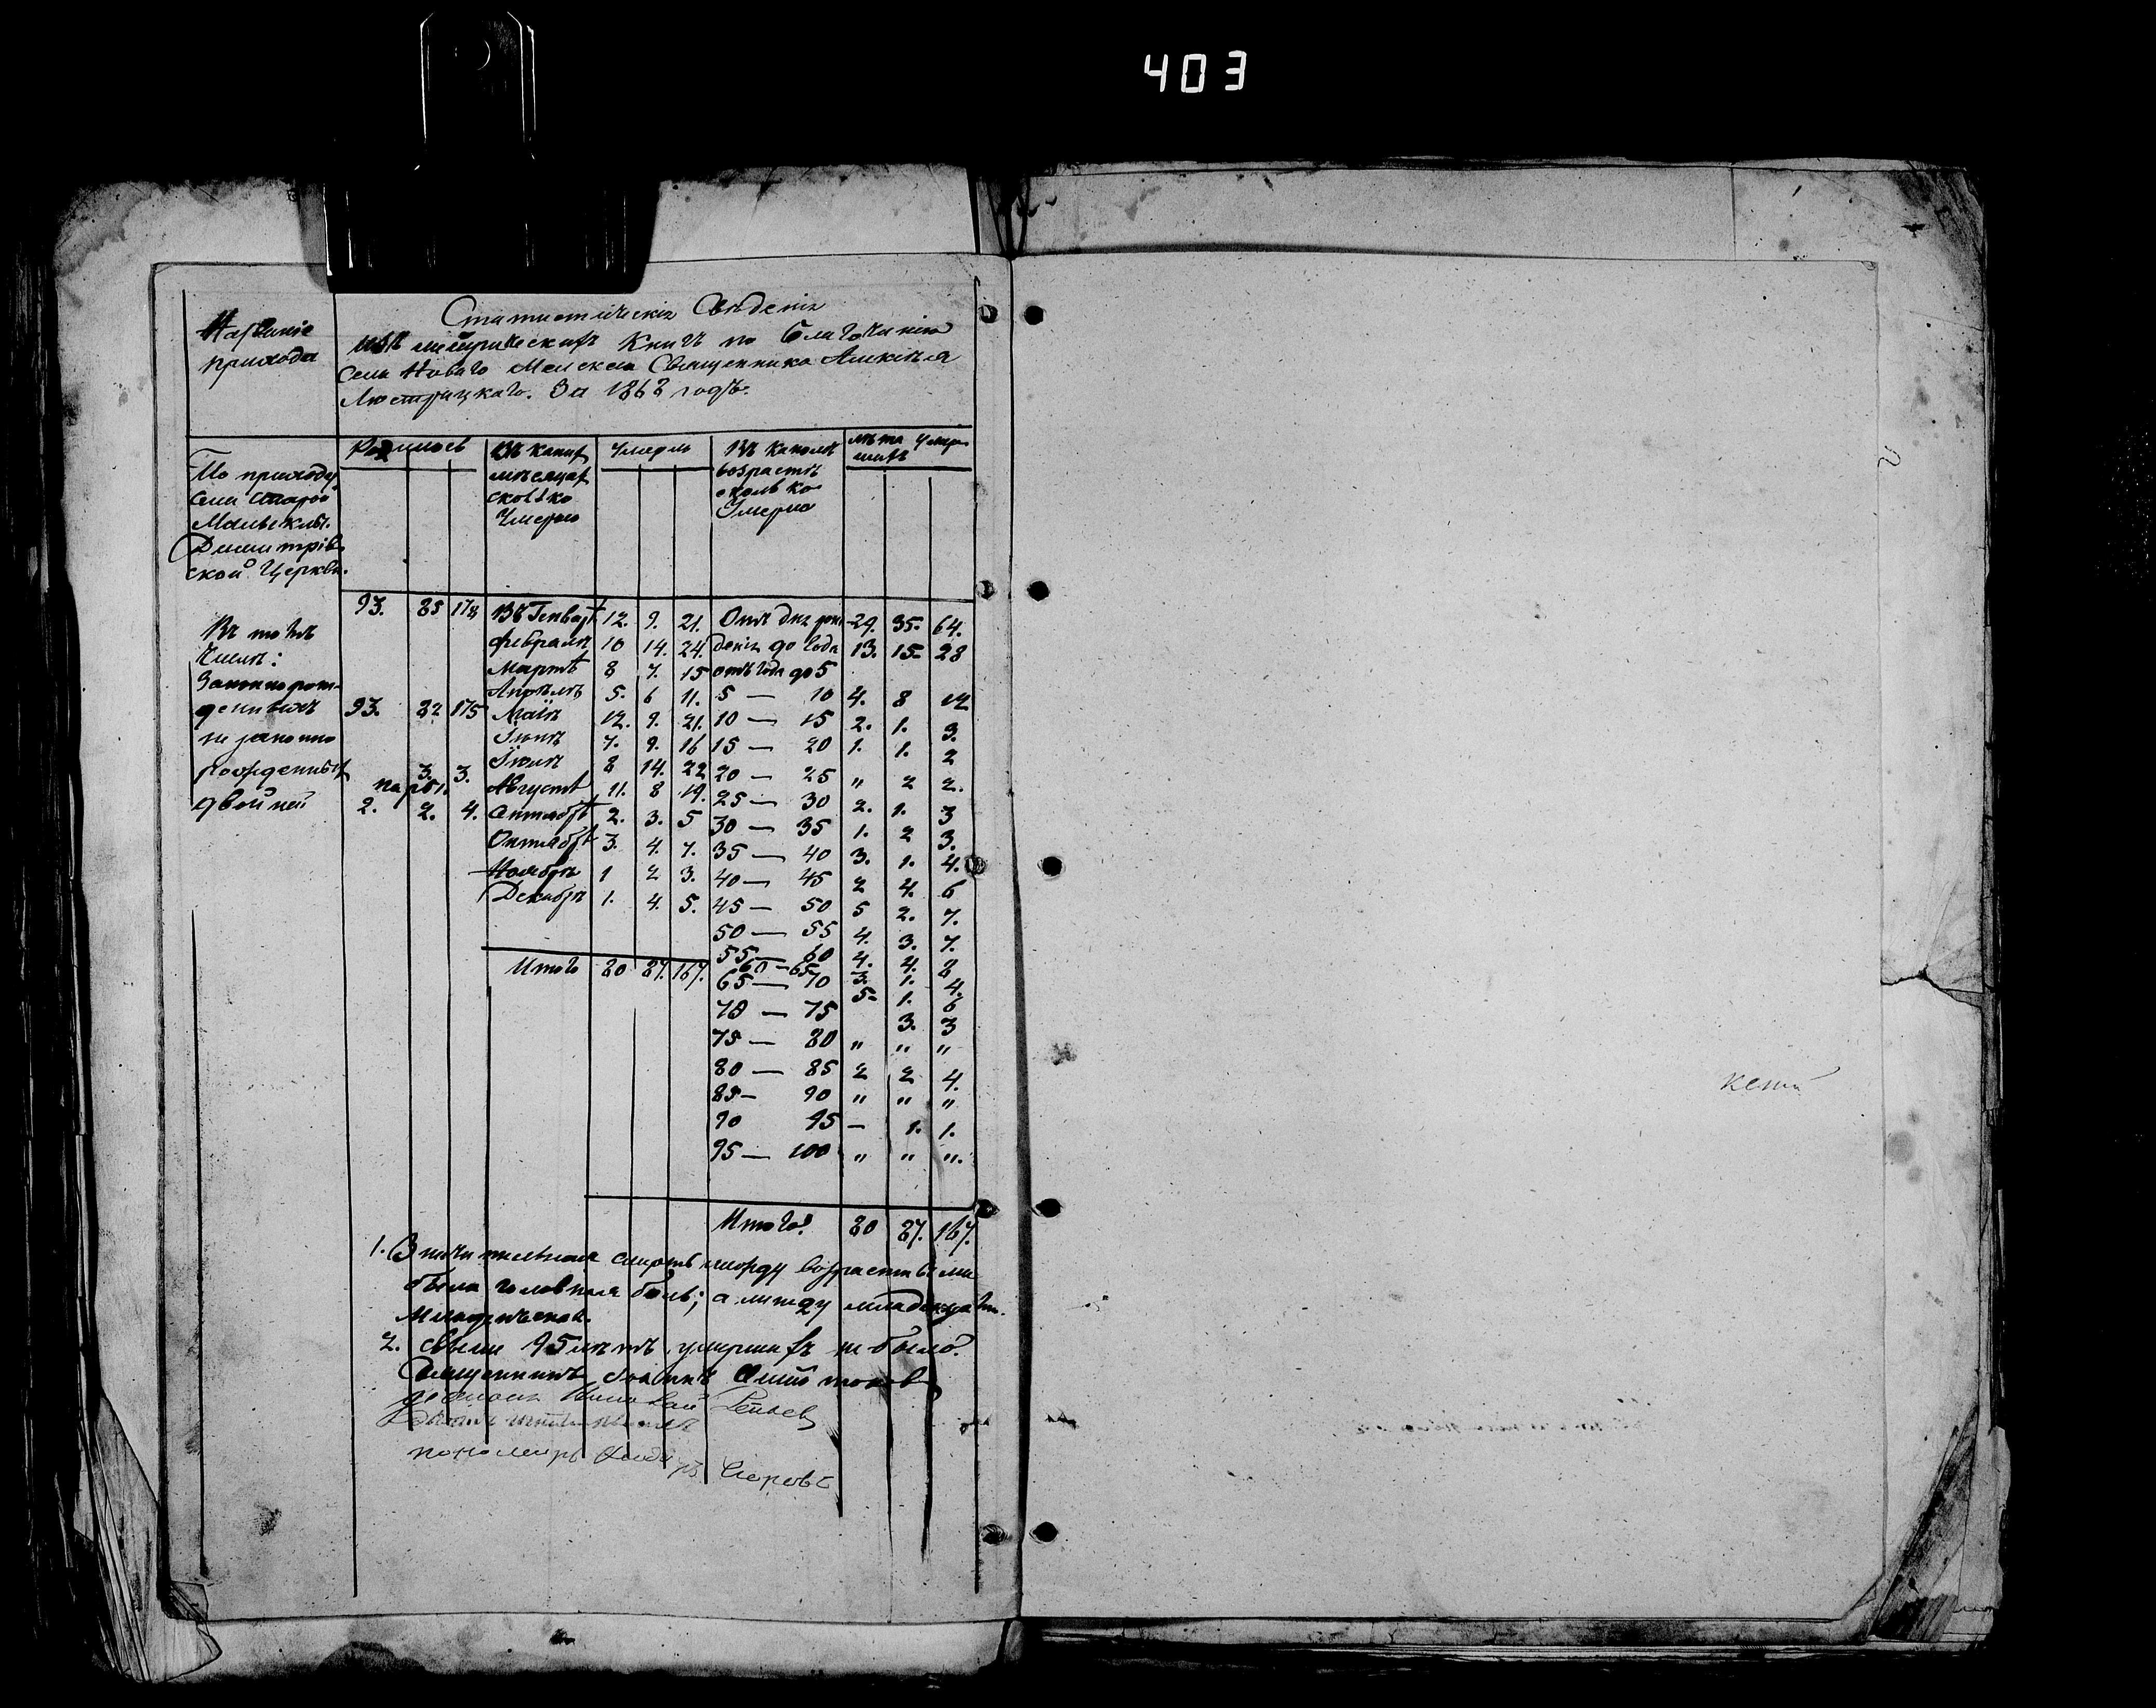 403
Названіе
прихода
Статистическія Свѣденія
изъ метрическихъ Книгъ по Благочинію
села Новаго Священника Алексѣя
За 1868 годъ.
По приходу
села Старой
Димитрів
ской Церкви.
Родилось
Въ какихъ
мѣсяцахъ
сколько
Умерло
Умерло
Въ какомъ
возрастѣ
сколько
Умерло
лѣта Умер
шихъ
93. 85 178
Въ томъ
числѣ:
Законнорож-
денныхъ 93. 82 175
не законно
рожденныхъ 3. 3.
пары.
двойней 2. 2. 4.
Въ Генварѣ 12. 9. 21.
Февралѣ 10 14. 24.
Мартѣ 8 7. 15
Апрѣлѣ 5. 6 11.
Маіѣ 12. 9. 21.
Іюнѣ 7. 9. 16
Іюлѣ 8 14. 22
Августѣ 11. 8 19.
Сентябрѣ 2. 3. 5
Октябрѣ 3. 4. 7.
Ноябрѣ 1 2 3.
Декабрѣ 1. 4. 5.
Итого 80 87. 167.
Отъ дня рож- 29. 35. 64.
денія до года 13. 15. 28
отъ года до 5
5 — 10 4. 8 12
10 — 15 2. 1. 3.
15 — 20 1. 1. 2
20 — 25 " 2 2.
25 — 30 2. 1. 3
30 — 35 1. 2 3.
35 — 40 3. 1. 4.
40 — 45 2 4. 6
45 — 50 5 2. 7.
50 — 55 4. 3. 7.
55 — 60 4. 4. 8
60 — 65 3. 1. 4.
65 — 70 5. 1. 6
70 — 75 3. 3
75 — 80 " " "
80 — 85 2 2 4.
85 — 90 " " "
90 95 — 1. 1.
95 — 100 " " ".
Итого. 80 87. 167.
1. смерть между возрастными
была головная боль; а между младенцами
Младенческая.
2. свыше 95 лѣтъ умершихъ не было.
Священникъ Іоаннъ
Діаконъ Николай
пономарь